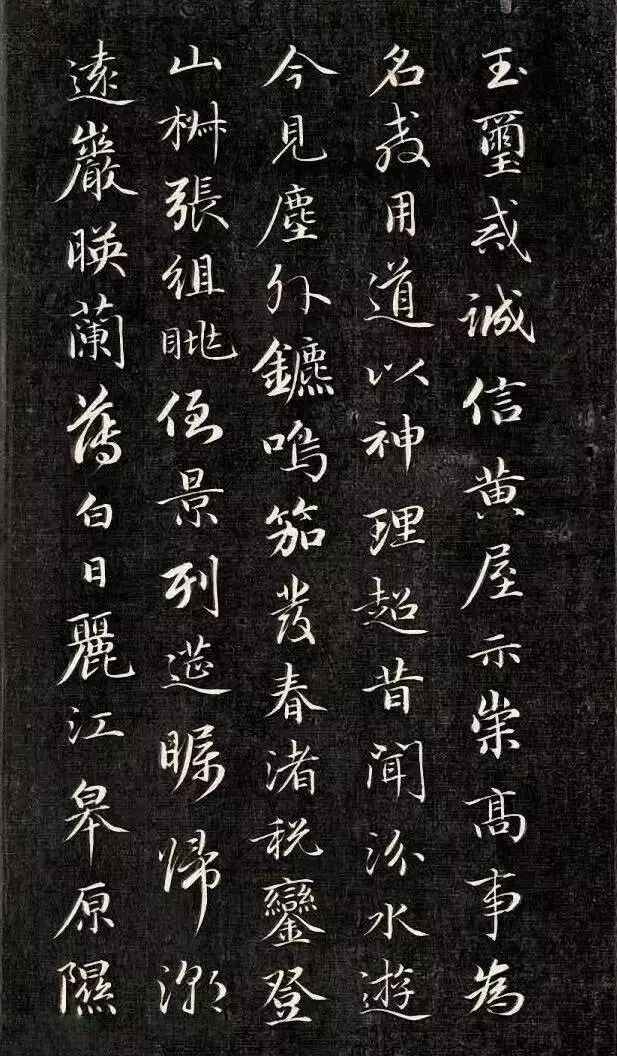 玉璽戒誠信黄屋示崇髙事為
名教用道以神理超昔聞汾水遊
今見塵外鑣鳴笳發春渚税鑾登
山椒張組眺倒景列筵矚歸潮
遠巖暎蘭薄白日麗江皋原隰